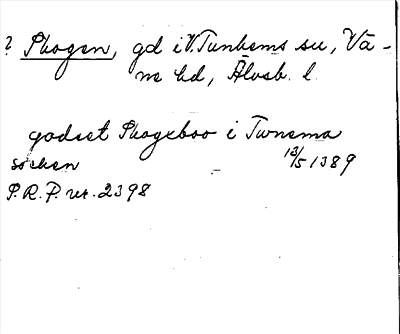 ? Skogen, gd i V. Tunhems sn, Vä-
ne hd, Älvsb. l.
godset Skogxboo i Twnema
socken 13/5 1389
S.R.P. nr. 2398